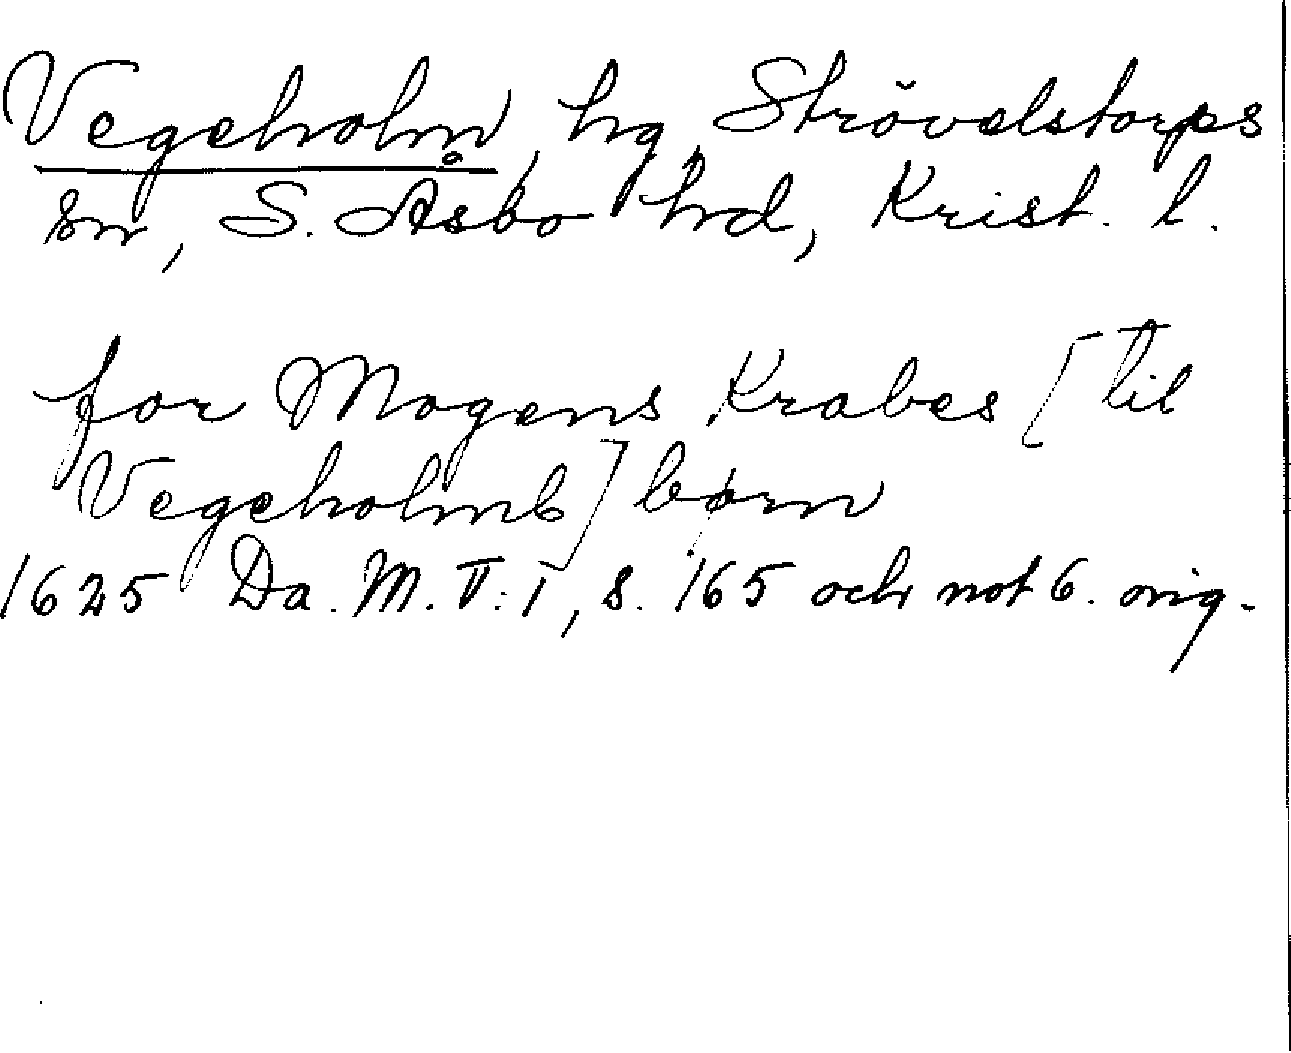 Vegeholm, hg, Strövelstorps
sn, S. Åsbo hd, Krist. l.
for Mogens Krabes [til
Vegeholmb] børn
1625 Da. M. V:1, s. 165 och not 6. orig.